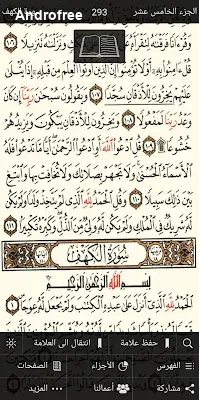 الجزء الخامس عشر 293 Androfree الكهف
وَنَزَّلْنَٰهُ تَنزِيلًا ١٠٦
قُلْ ءَامِنُوا۟ بِهِۦٓ أَوْ لَا تُؤْمِنُوٓا۟ إِنَّ ٱلَّذِينَ أُوتُوا۟ ٱلْعِلْمَ مِن قَبْلِهِۦٓ إِذَا يُتْلَىٰ
عَلَيْهِمْ يَخِرُّونَ لِلْأَذْقَانِ سُجَّدًا ١٠٧ وَيَقُولُونَ سُبْحَٰنَ رَبِّنَآ إِن كَانَ
وَعْدُ رَبِّنَا لَمَفْعُولًا ١٠٨ وَيَخِرُّونَ لِلْأَذْقَانِ يَبْكُونَ وَيَزِيدُهُمْ
خُشُوعًا ١٠٩ قُلِ ٱدْعُوا۟ ٱللَّهَ أَوِ ٱدْعُوا۟ ٱلرَّحْمَٰنَ أَيًّا مَّا تَدْعُوا۟ فَلَهُ
ٱلْأَسْمَآءُ ٱلْحُسْنَىٰ وَلَا تَجْهَرْ بِصَلَاتِكَ وَلَا تُخَافِتْ بِهَا وَٱبْتَغِ
بَيْنَ ذَٰلِكَ سَبِيلًا ١١٠ وَقُلِ ٱلْحَمْدُ لِلَّهِ ٱلَّذِى لَمْ يَتَّخِذْ وَلَدًا وَلَمْ يَكُن
لَّهُۥ شَرِيكٌ فِى ٱلْمُلْكِ وَلَمْ يَكُن لَّهُۥ وَلِىٌّ مِّنَ ٱلذُّلِّ وَكَبِّرْهُ تَكْبِيرًۢا ١١١
سُورَةُ الكَهْفِ
بِسْمِ ٱللَّهِ ٱلرَّحْمَٰنِ ٱلرَّحِيمِ
ٱلْحَمْدُ لِلَّهِ ٱلَّذِىٓ أَنزَلَ عَلَىٰ عَبْدِهِ ٱلْكِتَٰبَ وَلَمْ يَجْعَل لَّهُۥ عِوَجَا ١
حفظ علامة انتقال الى العلامة
الفهرس الأجزاء الصفحات
مشاركة أعمالنا المزيد